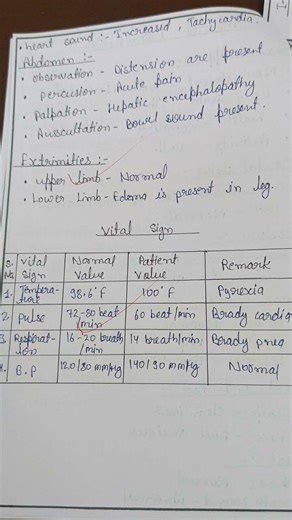 • heart sound :- Increased, Tachycardia.
Abdomen :-
• observation - Distension are present
• percusion - Acute pain
• Palpation - Hepatic encephalopathy
• Ausscultation - Bowel sound present.
Extrimities :-
• upper limb - Normal
• Lower Limb - Edema is present in leg.
Vital Sign
S. No Vital Sign Normal Value Patient Value Remark
1. Tempera-ture 98.6°F 100°F Pyrexia
2. Pulse 72-80 beat/min 60 beat/min Brady cardia
3. Respirat-ion 16-20 breath/min 14 breath/min Brady pnea
4. B.P 120/80 mmHg 140/90 mmHg Normal